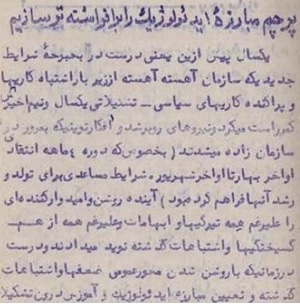 پرچم مبارزهٔ ایدئولوژیک را برافراشته تر سازیم
یکسال پیش ازین یعنی درست در بحبوحهٔ شرایط
جدید یکه سازمان آهسته آهسته از زیر بار اشتباه کاریها
و پراکنده کاریهای سیاسی - تشکیلاتی یکسال ونیم اخیر
کمر راست میکرد ونیروهای روبرشد و افکار نوینیکه بمرور در
سازمان زاده میشدند ( بخصوص که دوره ۶ ماهه انتقاد
اواخر بهار تا اواخر شهریور ه شرایط مساعدی برای تولد و
رشد آنها فراهم کرده بود ) آینده روشن وامیدوارکننده ای
را علیرغم همه تیرگیها و ابهامات وعلیرغم همه از هم
گسیختگیها واشتباهات گذشته نوید میدادند ودرست
درزمانیکه باروشن شدن محور عمومی ضعفها واشتباهات
گذشته و تعیین مبارزه ایدئولوژیک و آموزش درون تشکیلا